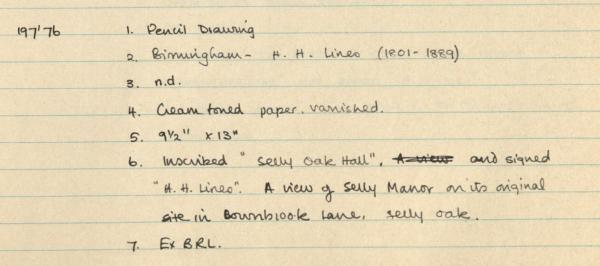 197'76 1. Pencil Drawing
2. Birmingham - H. H. Lines (1801-1889)
3. n.d.
4. Cream toned paper. varnished.
5. 9½" x 13"
6. Inscribed "Selly Oak Hall", A view and signed
"H. H. Lines". A view of Selly Manor on its original
site in Bournbrook Lane, Selly Oak.
7. Ex BRL.